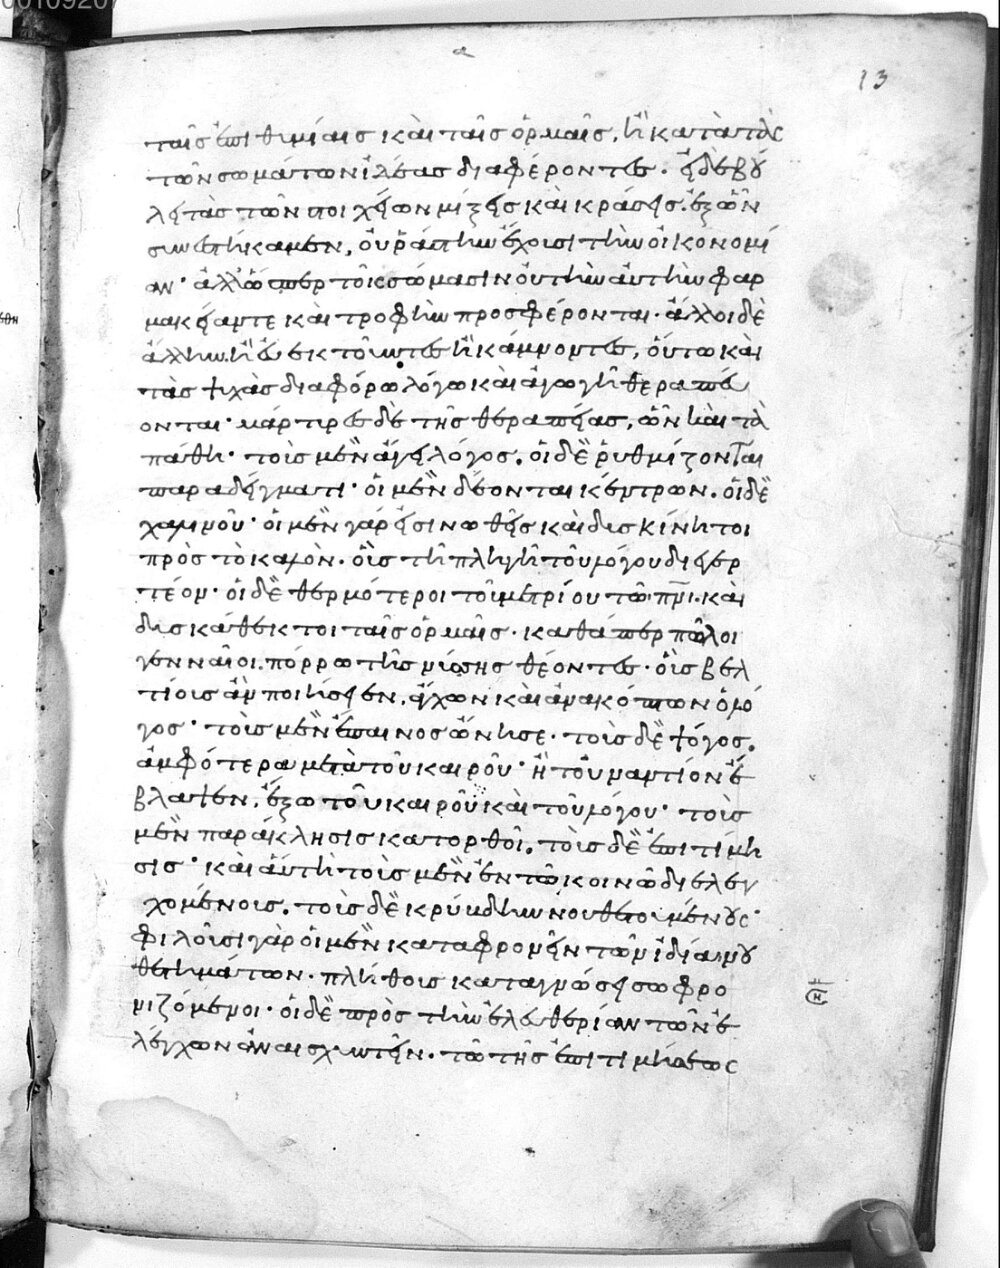 00109207
α
13
ταῖς ἐπιθυμίαις καὶ ταῖς ὁρμαῖς, ἢ κατὰ τὰς
τῶν σωμάτων ἰδέας διαφέροντες. εἰ δὲ βού
λει τὰς τῶν στοιχείων μίξεις καὶ κράσεις. ἐξ ὧν
συνεστήκαμεν, οὐ ῥᾴστην ἔχουσι τὴν οἰκονομί
αν· ἀλλ' ὥσπερ τοῖς σώμασιν οὐ τὴν αὐτὴν φαρ
μακείαν τε καὶ τροφὴν προσφέρονται· ἄλλοι δὲ
ἄλλην. ἢ εὐεκτοῦντες ἢ κάμνοντες, οὕτω καὶ
τὰς ψυχὰς διαφόρω λόγω καὶ ἀγωγῆ θεραπεύ
ονται· μάρτυρες δὲ τῆς θεραπείας, ὧν καὶ τὰ
πάθη· τοὺς μὲν ἄγει λόγος. οἱ δὲ ῥυθμίζονται
παραδείγματι· οἱ μὲν δέονται κέντρων. οἱ δὲ
χαλινοῦ· οἱ μὲν γάρ εἰσι νωθεῖς καὶ δυσκίνητοι
πρὸς τὸ καλὸν. οὓς τῆ πληγῆ τοῦ λόγου διεγερ
τέον· οἱ δὲ θερμότεροι τοῦ μετρίου τῶ πνι. καὶ
δυσκάθεκτοι ταῖς ὁρμαῖς. καθάπερ πῶλοι
γενναῖοι. πόρρω τῆς νύσσης θέοντες· οὓς βελ
τίους ἂν ποιήσειεν, ἄγχων καὶ ἀνακόπτων ὁ λό
γος· τοὺς μὲν ἔπαινος ὤνησε. τοὺς δὲ ψόγος.
ἀμφότερα μετὰ τοῦ καιροῦ· ἢ τοὐναντίον ἔ
βλαψεν, ἔξω τοῦ καιροῦ καὶ τοῦ λόγου· τοὺς
μὲν παράκλησις κατορθοῖ. τοὺς δὲ ἐπιτίμη
σις· καὶ αὕτη τοὺς μὲν ἐν τῶ κοινῶ διελεγ
χομένους. τοὺς δὲ κρύβδην νουθετουμένους·
φιλοῦσι γὰρ οἱ μὲν καταφρονεῖν τῶν ἰδία νου
θετημάτων. πλήθους καταγνώσει σωφρο
νιζόμενοι· οἱ δὲ πρὸς τὴν ἐλευθερίαν τῶν ἐ
λέγχων ἀναισχυντεῖν. τῶ τῆς ἐπιτιμήσεως